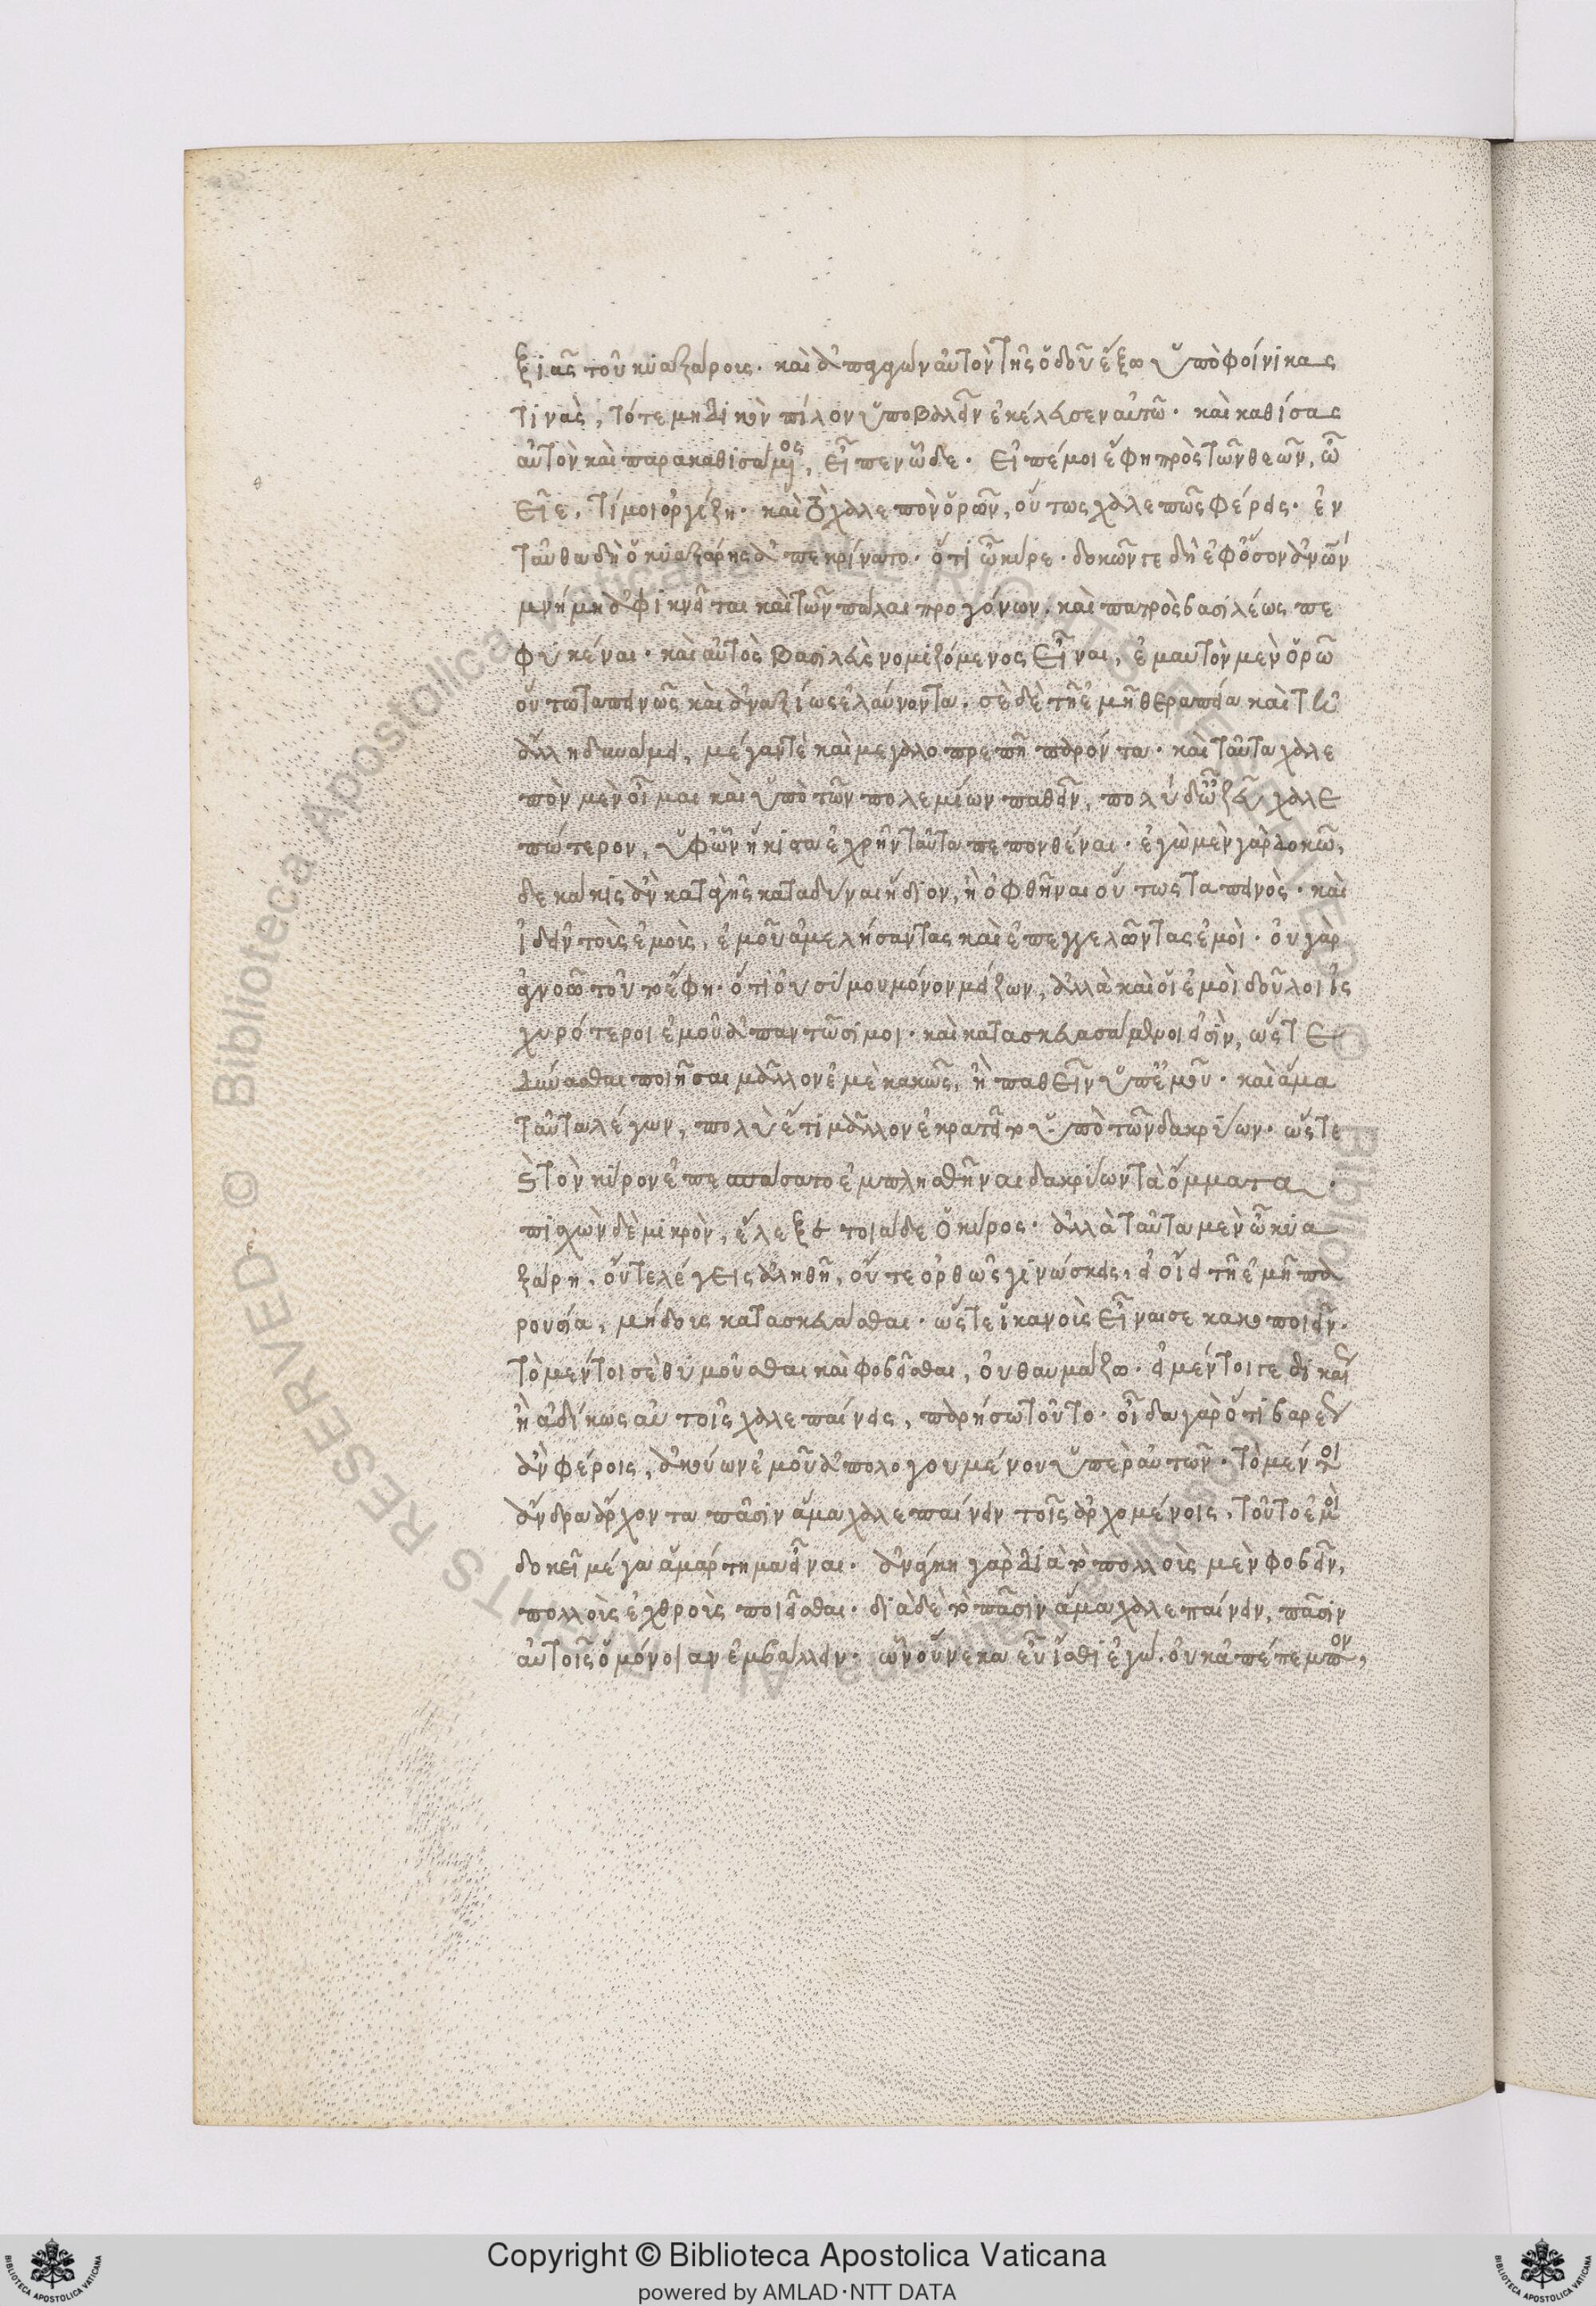 ξιᾶς τοῦ κυαξάρους. καὶ ἀπαγαγὼν αὐτὸν τῆς ὁδοῦ ἔξω ὑπὸ φοίνικας
τινὰς, τότε μηδικὸν πίλον ὑποβαλεῖν ἐκέλευσεν αὐτῶ. καὶ καθίσας
αὐτὸν καὶ παρακαθισάμενος, εἶπεν ὧδε. εἰπέ μοι ἔφη πρὸς τῶν θεῶν, ὦ
θεῖε, τί μοι ὀργίζη. καὶ τί χαλεπὸν ὁρῶν, οὕτως χαλεπῶς φέρεις. ἐν
ταῦθα δὴ ὁ κυαξάρης ἀπεκρίνατο. ὅτι ὦ κῦρε. δοκῶν γε δὴ ἐφ' ὅσον ἀνῶν
μνήμη ἀφικνεῖται καὶ τῶν πάλαι προγόνων. καὶ πατρὸς βασιλέως πε
φυκέναι. καὶ αὐτὸς βασιλεὺς νομιζόμενος εἶναι, ἐμαυτὸν μὲν ὁρῶ
οὕτω ταπεινῶς καὶ ἀναξίως ἐλαύνοντα. σὲ δὲ τῆ ἐμῆ θεραπεία καὶ τῆ
ἄλλη δυνάμει, μέγαν τὲ καὶ μεγαλοπρεπῆ παρόντα. καὶ ταῦτα χαλε
πὸν μὲν οἶμαι καὶ ὑπὸ τῶν πολεμίων παθεῖν, πολὺ δ' ὦ ζεῦ χαλε
πώτερον, ὑφ' ὧν ἥκιστα ἐχρῆν ταῦτα πεπονθέναι. ἐγὼ μὲν γὰρ δοκῶ,
δεκάκις ἂν κατὰ γῆς καταδῦναι ἥδιον, ἢ ὀφθῆναι οὕτως ταπεινὸς. καὶ
ἰδεῖν τοὺς ἐμοὺς, ἐμοῦ ἀμελήσαντας καὶ ἐπεγγελῶντας ἐμοὶ. οὐ γὰρ
ἀγνοῶ τοῦτο ἔφη. ὅτι οὐ σύ μου μόνον μείζων, ἀλλὰ καὶ οἱ ἐμοὶ δοῦλοι ἰς
χυρότεροι ἐμοῦ ἀπαντῶσί μοι. καὶ κατασκευασάμενοι εἰσὶν, ὥστε
δύνασθαι ποιῆσαι μᾶλλον ἐμὲ κακῶς, ἢ παθεῖν ὑπ' ἐμοῦ. καὶ ἅμα
ταῦτα λέγων, πολὺ ἔτι μᾶλλον ἐκρατεῖτο ὑπὸ τῶν δακρύων. ὥστε
καὶ τὸν κῦρον ἐπεσπάσατο ἐμπλησθῆναι δακρύων τὰ ὄμματα.
ἐπισχὼν δὲ μικρὸν, ἔλεξε τοιάδε ὁ κῦρος. ἀλλὰ ταῦτα μὲν ὦ κυα
ξάρη, οὔτε λέγεις ἀληθῆ, οὔτε ὀρθῶς γινώσκεις, εἰ οἴει τῆ ἐμῆ πα
ρουσία, μήδους κατασκευάσθαι. ὥστε ἱκανοὺς εἶναι σε κακοποιεῖν.
τὸ μέντοι σὲ θυμοῦσθαι καὶ φοβεῖσθαι, οὐ θαυμάζω. εἰ μέντοι γε δικαί
ἢ ἀδίκως αὐτοῖς χαλεπαίνεις, παρήσω τοῦτο. οἶδα γὰρ ὅτι βαρέως
ἂν φέροις, ἀκούων ἐμοῦ ἀπολογουμένου ὑπὲρ αὐτῶν. τὸ μέντοι
ἄνδρα ἄρχοντα πᾶσιν ἅμα χαλεπαίνειν τοῖς ἀρχομένοις, τοῦτο ἐμοὶ
δοκεῖ μέγα ἁμάρτημα εἶναι. ἀνάγκη γὰρ διὰ τὸ πολλοὺς μὲν φοβεῖν,
πολλοὺς ἐχθροὺς ποιεῖσθαι. διὰ δὲ τὸ πᾶσιν ἅμα χαλεπαίνειν, πᾶσιν
αὐτοῖς ὁμόνοιαν ἐμβάλλειν. ὧν οὕνεκα εὖ ἴσθι ἐγὼ. οὐκ ἀπέπεμπον,